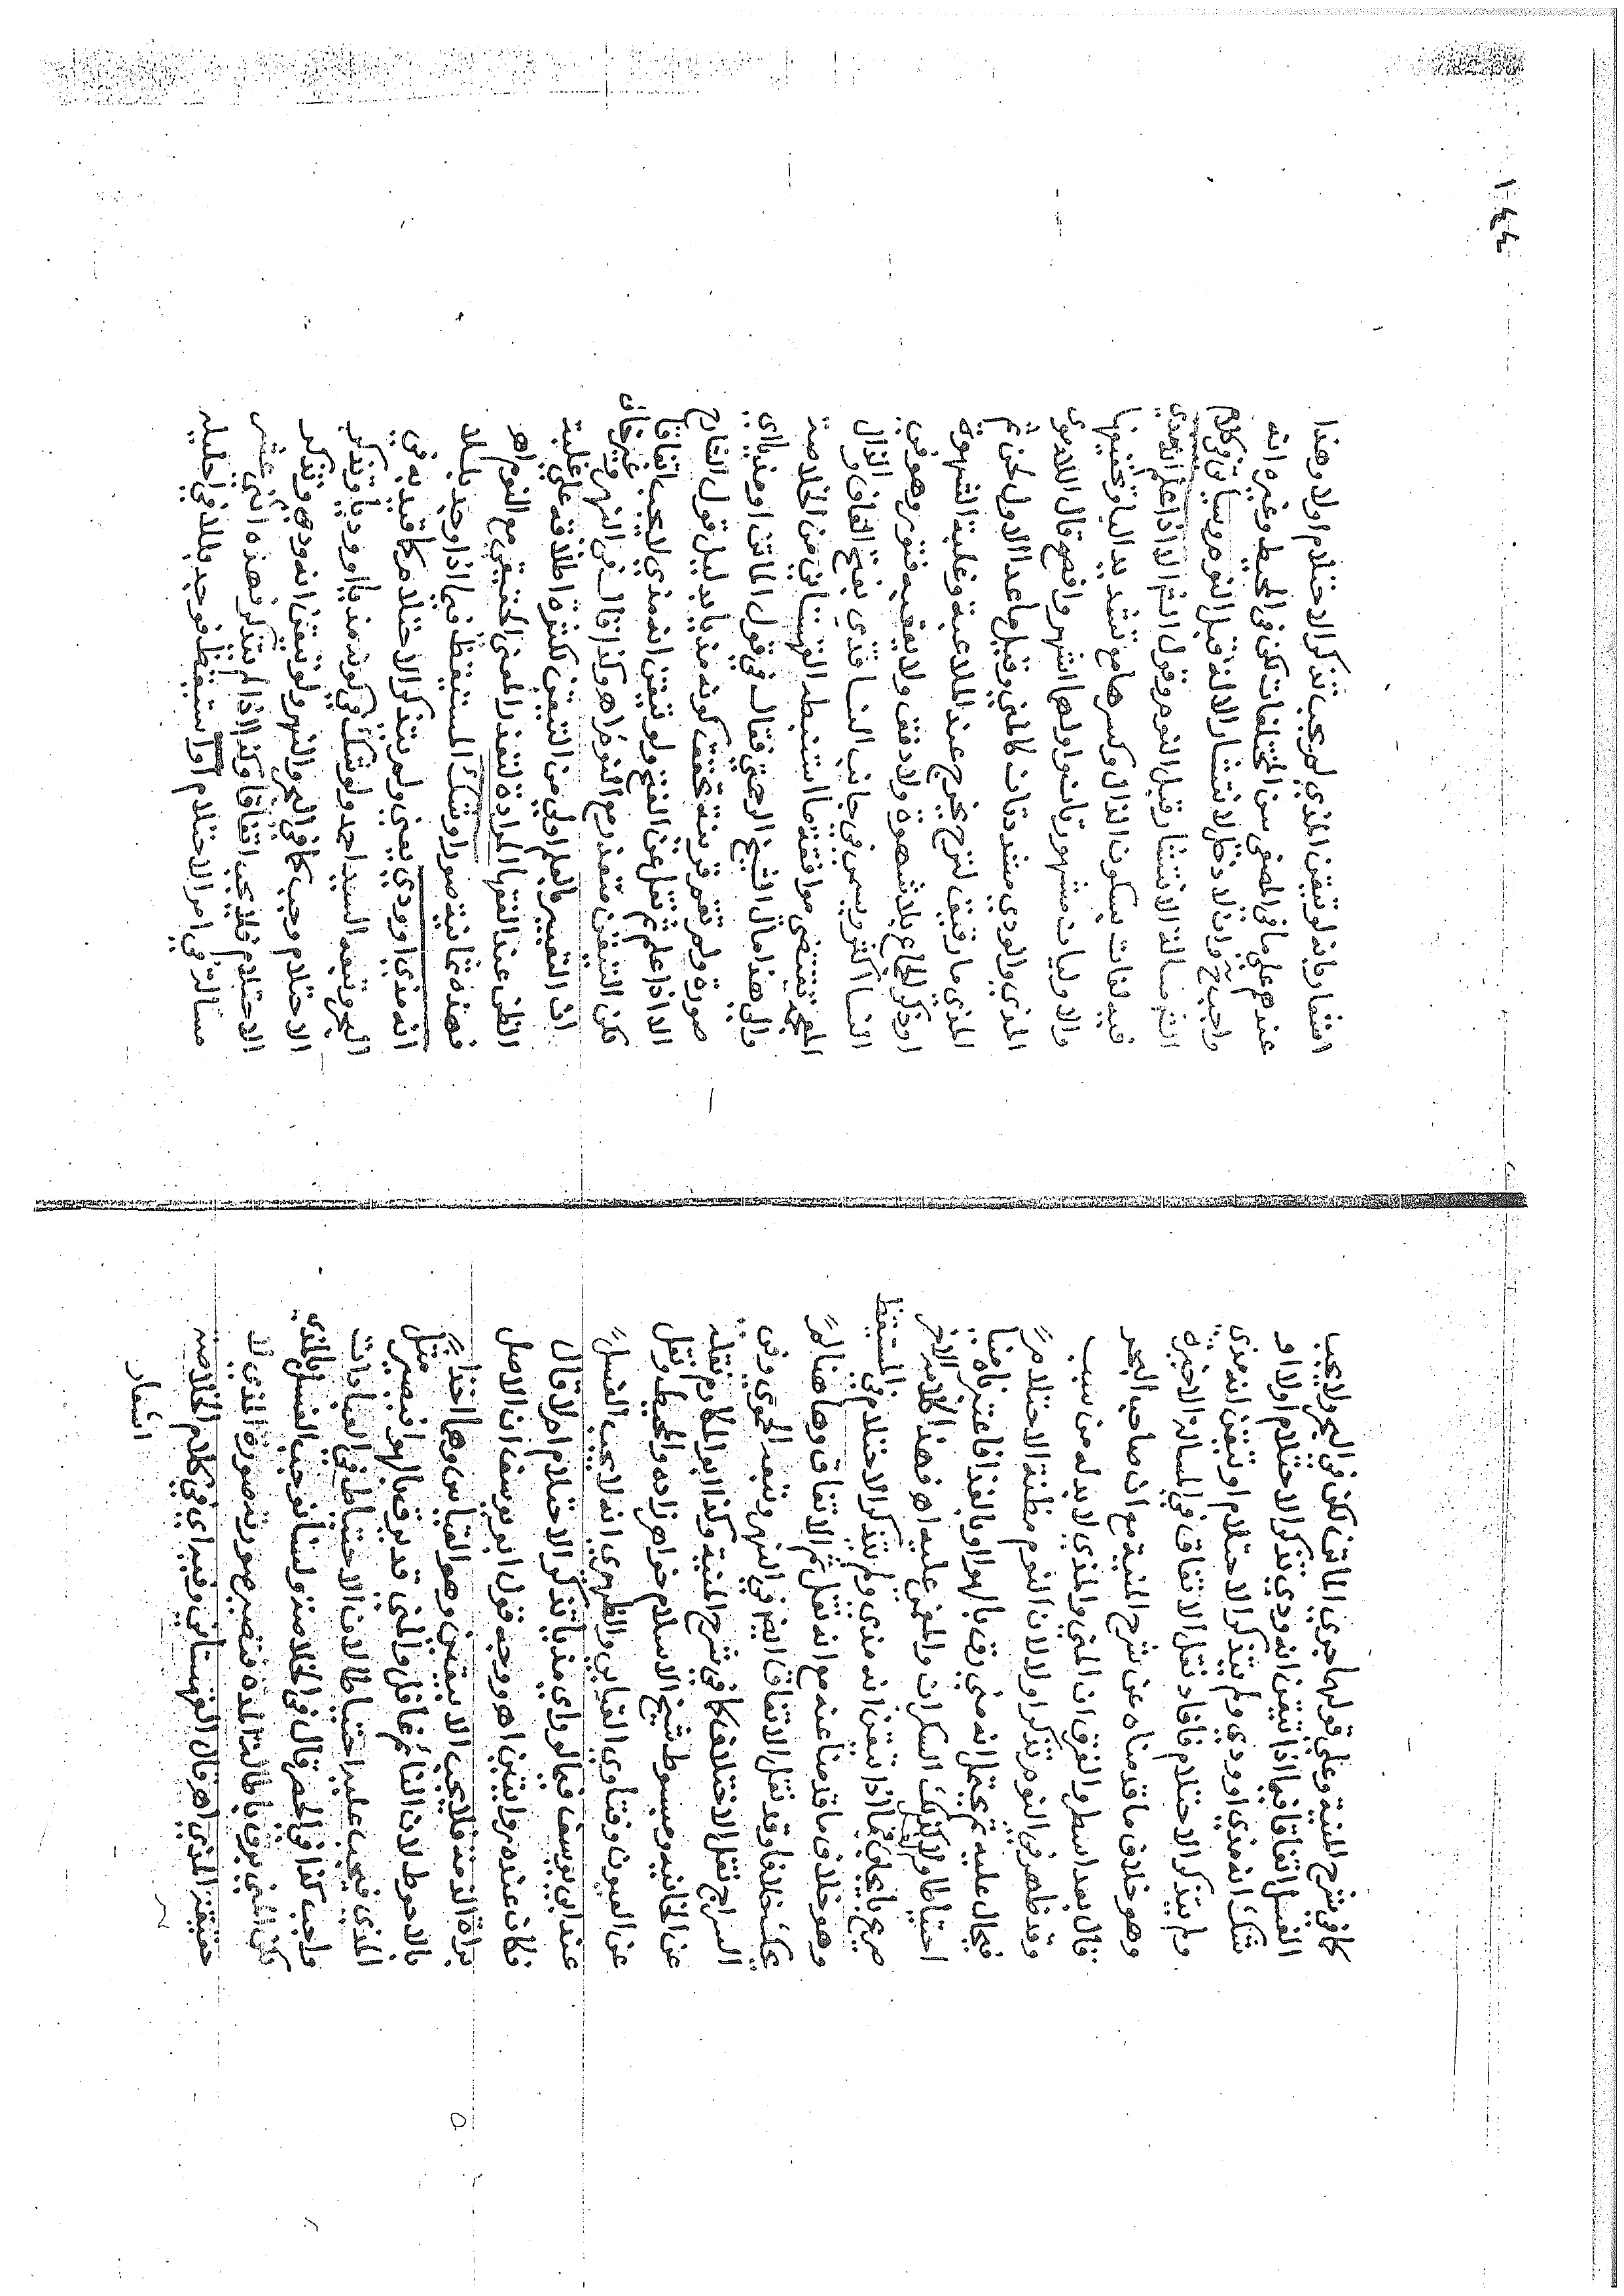 كما في شرح المنية وعلى قولهما جرى الماتن لكن في البحر ولا يجب
الغسل اتفاقا فيما اذا تيقن انه ودي تذكر الاحتلام اولا او
شك انه مذي او ودي ولم يتذكر الاحتلام او تيقن انه مذي
ولم يتذكر الاحتلام فافاد نقل الاتفاق في المسالة الاخيرة
وهو خلاف ما قدمناه عن شرح المنية مع ان صاحب البحر
قال بعد اسطر والفرق ان المني والمذي لا بد له من سبب
وقد ظهر في النوم تذكر اولا لان النوم مظنة الاحتلام
فيحال عليه ثم يحتمل انه مني رق بالهواء او بالغذا فاعتبرناه منيا
احتياطا ولا كذلك السكران والمغمى عليه اهـ فهذا الكلام الاخير
صريح بالخلاف فيما اذا تيقن انه مذي ولم يتذكر الاحتلام في المستيقظ
وهو خلاف ما قدمنا عنه مع انه نقل ثم الاتفاق وها هنا لم
يحك خلافا وقد نقل الاتفاق ايضا في النهر وتبعه الحموي وفي
السراج نقل الاختلاف كما في شرح المنية وكذا ابو المكارم نقله
عن الخانيه ومبسوط شيخ الاسلام خواهر زاده والمحيط ونقل
عن العيون وفتاوي القدير والظهيري انه لا يجب الغسل
عند ابي يوسف فيما لو راي مذيا يتذكر الاحتلام اولا قال
فكان عنده روايتين اهـ ووجه قول ابو يوسف ان الاصل
براة الذمة فلا يجب الا بيقين وهو القياس وهما اخذا
بالاحوط لان النائم غافل والمني قد يرق بالهوا فيصير مثل
المذي فيجب عليه احتياطا لان الاحتياط في العبادات
واجب كذا في الحصر قال في الخلاصة ولسنا نوجب الغسل بالمذي
لكن المني يرق باطالة المدة فتصير صورته صورة المذي لا
حقيقة المذي اهـ قال القهستاني وفيه اي في كلام الخلاصة
اشعار
اشعار بانه لو تيقن المذي لم يجب تذكر الاحتلام اولا وهذا
عندهم على ما في المصفى من المختلفات لكن في المحيط وغيره انه
واجب ح وانه لا دخل لانتشار الالة قبل النوم وسياتي كلام
انتهى مسالة الانتشار قبل النوم وقول انتهى الا اذا علم انه مذي
فيه لغات بسكون الذال وكسرها مع تشديد اليا وتخفيفها
والاوليات مشهورتان واولها اشهر وافصح قال الاموي
المذي والودي مشددتان كالمني وقيل ما عدا الاول لحن ثم
المذي ما رقيق لزج يخرج عند الملاعبة وغلبة الشهوة
او ذكر الجماع بلا شهوة ولا دفق ولا يعقبه فتور وهو في
النسا اكثر ويسمى في جانب النسا قذى بفتح القاف والذال
المعجمة تقتضى موافقة ما استنبطه القهستاني من الخلاصة
والى هذا مال الشيخ الرحمتي فقال في قول الماتن او مذيا اي
صورة ولم تقم قرينة تحقق كونه مذيا بدليل قول الشارح
الا اذا علم ثم نقل عن الفتح ولو تيقن انه مذي لا يجب اتفاقا
لكن التيقن متعذر مع النوم اهـ وكذا قال في النهر وقد خاف
ان التعبير بالعلم اولى من التيقن لكثرة اطلاقه على غلبة
الظن عند الفقها المرادة لتعذر المعنى الحقيقي مع النوم اهـ
فهذه ثمانية صور او شك المستيقظ فيما اذا وجد بللا
انه مذي او ودي يعني ولم يتذكر الاحتلام كما قيد به في
البحر وتبعه السيد احمد ولو شك في كونه مذيا او وديا وتذكر
الاحتلام وجب كما في البحر والنهر ولو تيقن انه ودي وتذكر
الاحتلام فلا يجب اتفاقا وكذا اذا لم يتذكر فهذه اثني عشر
مسالة في امر الاحتلام او استيقظ فوجد بللا في احليله